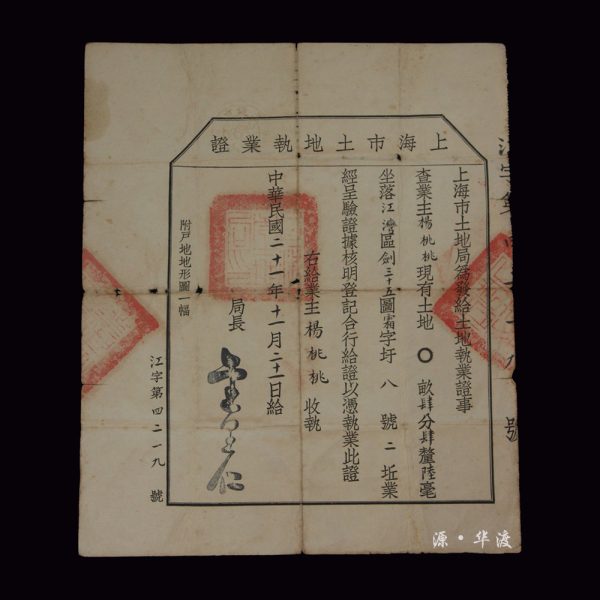 上海市土地執業證
上海市土地局爲發給土地執業證事
查業主楊桃桃現有土地〇畝肆分肆釐陸毫
坐落江灣區劍三十五圖霜字圩八號二坵業
經呈驗證據核明登記合行給證以憑執業此證
右給業主楊桃桃收執
中華民國二十一年十一月二十一日給
局長
附戶地地形圖一幅
江字第四二一九號
號
源·华渡